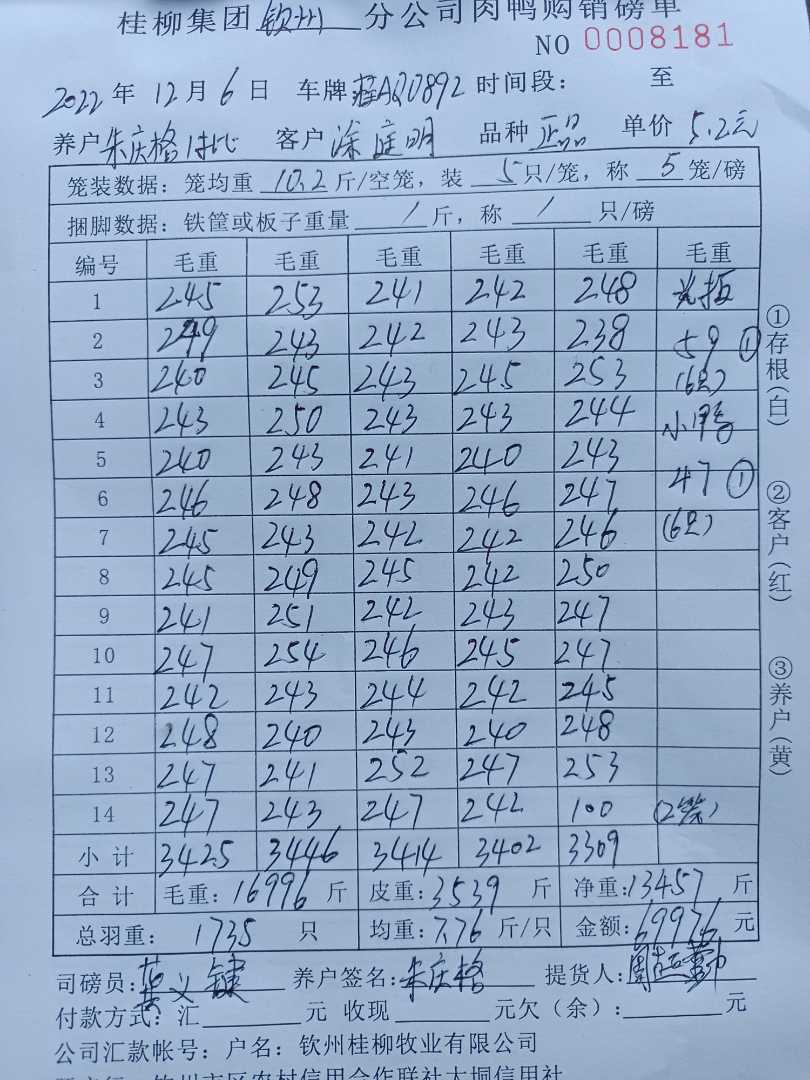 桂柳集团 钦州 分公司肉鸭购销磅单
NO 0008181
2022 年 12 月 6 日 车牌 桂AQ0892 时间段： 至
养户 朱庆格 客户 涂庭明 品种 正品 单价 5.2元
笼装数据：笼均重 10.2 斤/空笼，装 5 只/笼，称 5 笼/磅
捆脚数据：铁筐或板子重量 / 斤，称 / 只/磅
编号 毛重 毛重 毛重 毛重 毛重 毛重
1 245 253 241 242 248
2 249 243 242 243 238 59 ①
3 240 245 243 245 253 (6只)
4 243 250 243 243 244 小鸭
5 240 243 241 240 243
6 246 248 243 246 247 47 ①
7 245 243 242 242 246 (6只)
8 245 249 245 242 250
9 241 251 242 243 247
10 247 254 246 245 247
11 242 243 244 242 245
12 248 240 243 240 248
13 247 241 252 247 253
14 247 243 247 242 100 (2笼)
小计 3425 3446 3414 3402 3309
合计 毛重：16996 斤 皮重：3539 斤 净重：13457 斤
总羽重： 1735 只 均重：7.76 斤/只 金额：69976 元
司磅员： 义键 养户签名：朱庆格 提货人：
付款方式：汇 元 收现 元欠（余）： 元
公司汇款帐号：户名：钦州桂柳牧业有限公司
钦州市区农村信用合作联社大垌信用社
①存根（白）
②客户（红）
③养户（黄）